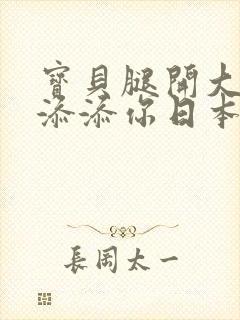 寶貝腿開大
添添你日本
長岡太一